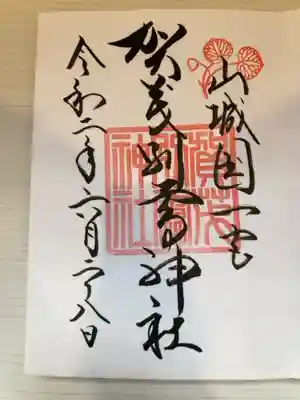 山城国一之宮
賀茂別雷神社
賀茂別雷神社
令和二年六月二八日